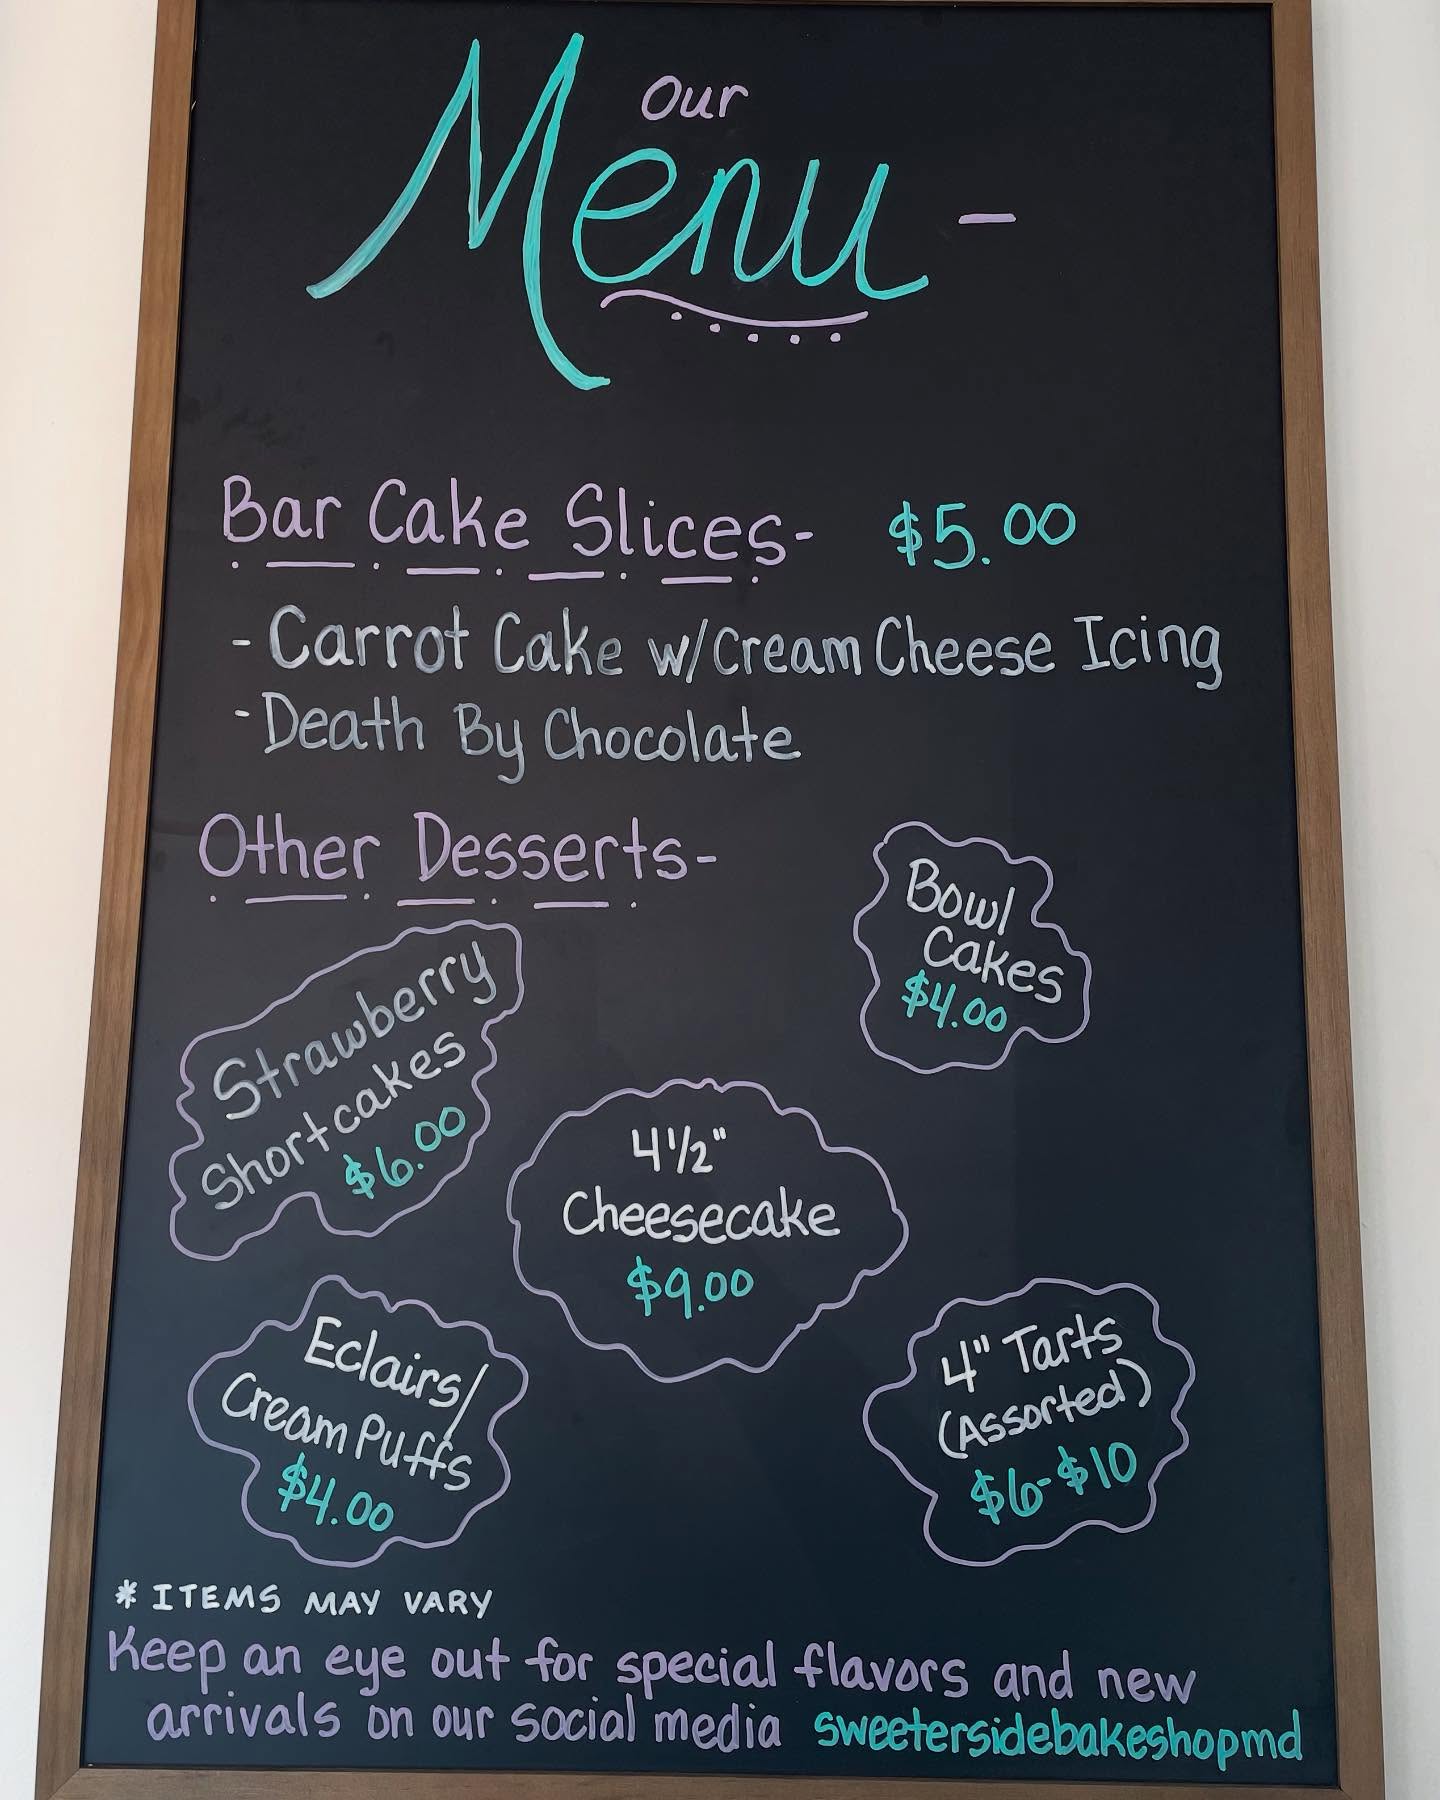 Our
Menu -
Bar Cake Slices- $5.00
- Carrot Cake w/Cream Cheese Icing
- Death By Chocolate
Other Desserts-
Bowl
Cakes
$4.00
Strawberry
Shortcakes
$6.00
4 1/2"
Cheesecake
$9.00
Eclairs/
Cream Puffs
$4.00
4" Tarts
(Assorted)
$6-$10
* ITEMS MAY VARY
Keep an eye out for special flavors and new
arrivals on our social media sweetersidebakeshopmd